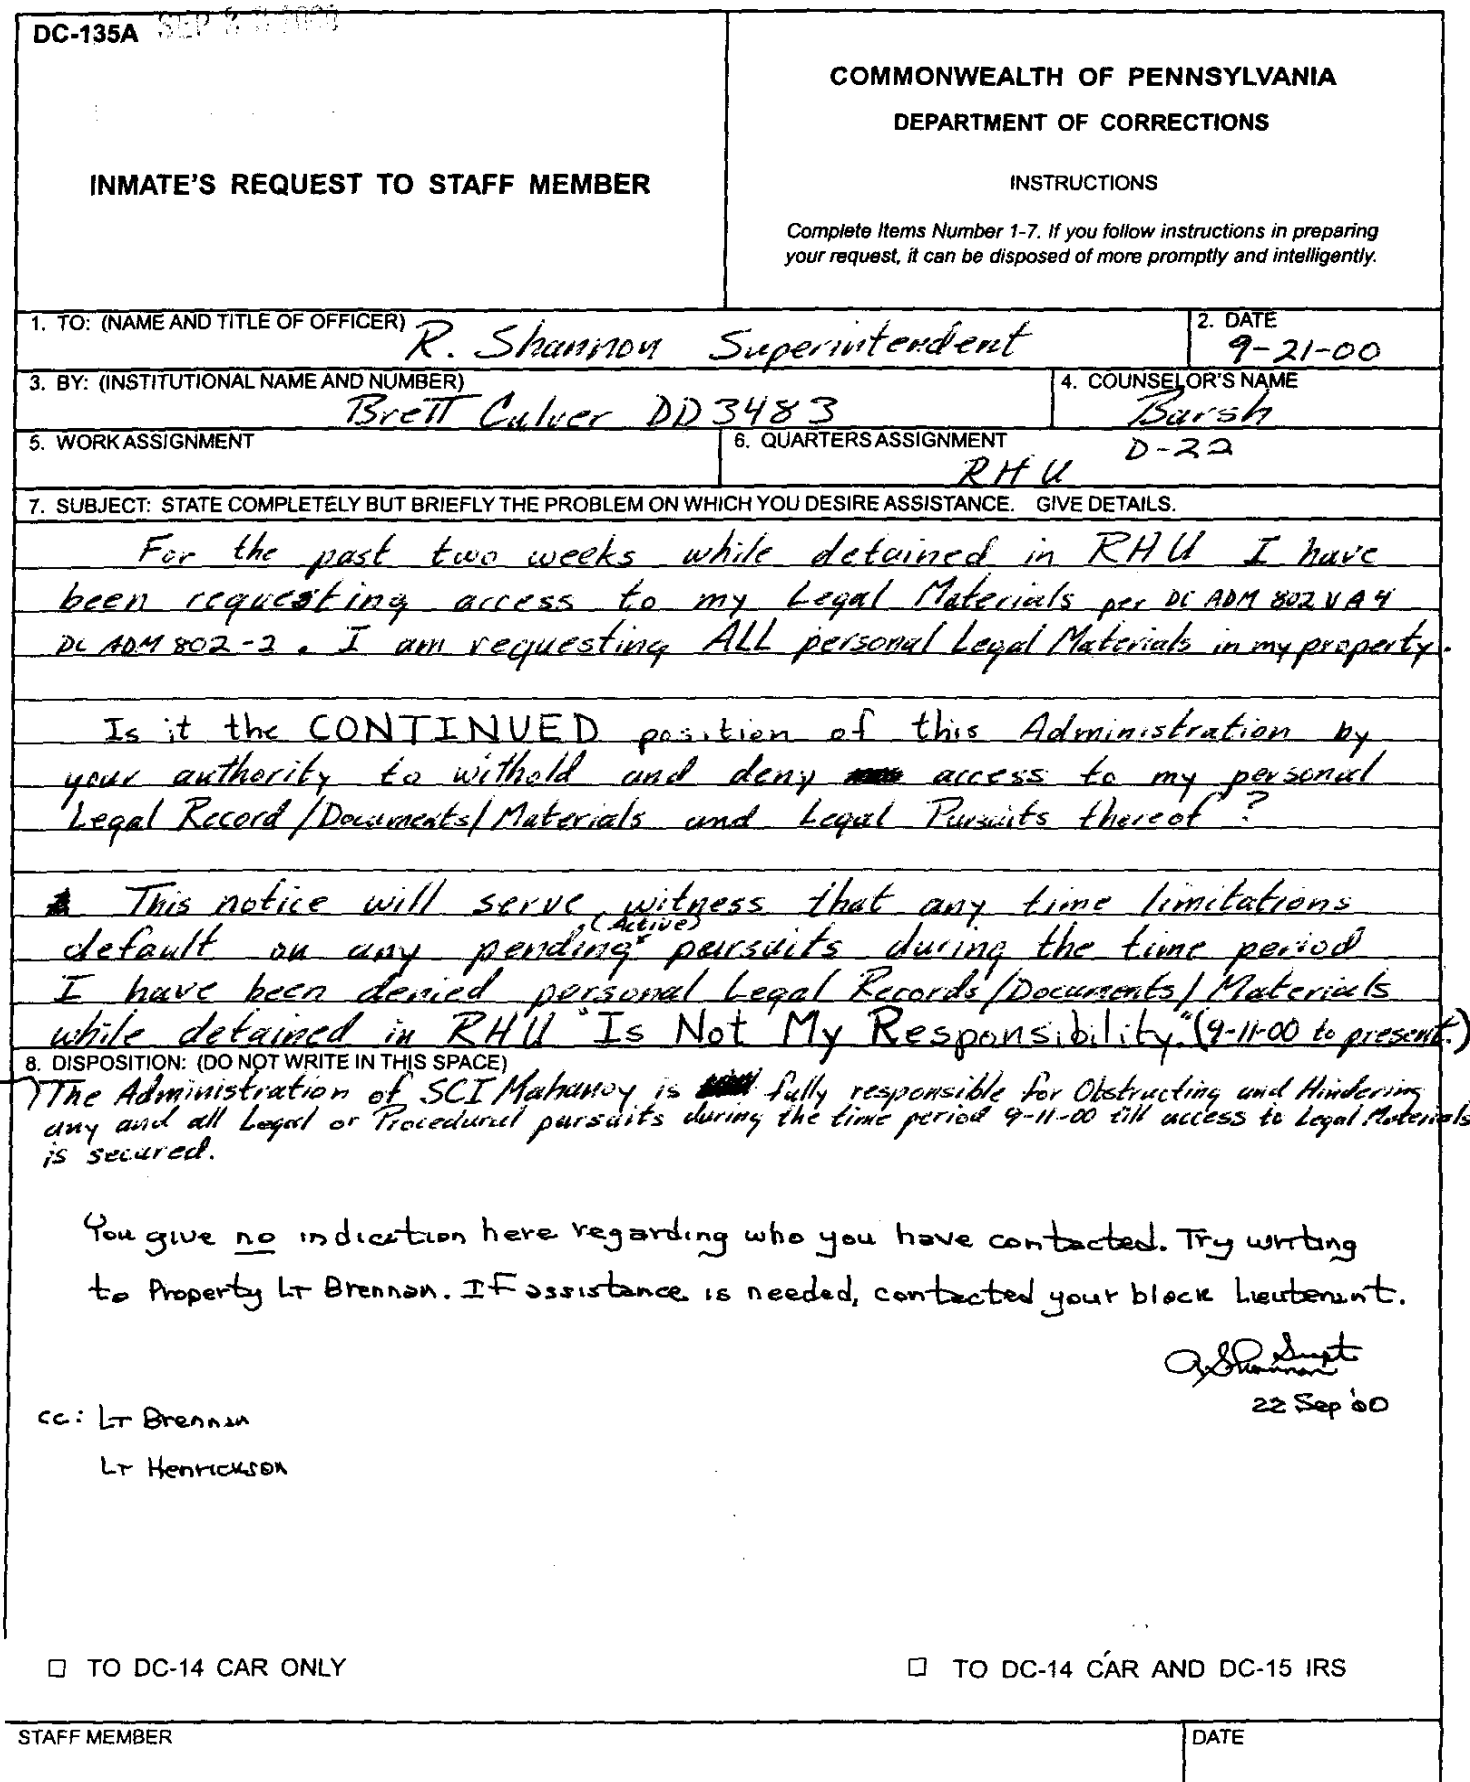 DC-135A
COMMONWEALTH OF PENNSYLVANIA
DEPARTMENT OF CORRECTIONS
INMATE'S REQUEST TO STAFF MEMBER
INSTRUCTIONS
Complete Items Number 1-7. If you follow instructions in preparing
your request, it can be disposed of more promptly and intelligently.
1. TO: (NAME AND TITLE OF OFFICER) R. Shannon Superintendent
2. DATE 9-21-00
3. BY: (INSTITUTIONAL NAME AND NUMBER) Brett Culver DD3483
4. COUNSELOR'S NAME Barsh
5. WORK ASSIGNMENT
6. QUARTERS ASSIGNMENT RHU D-22
7. SUBJECT: STATE COMPLETELY BUT BRIEFLY THE PROBLEM ON WHICH YOU DESIRE ASSISTANCE. GIVE DETAILS.
For the past two weeks while detained in RHU I have
been requesting access to my Legal Materials per DC ADM 802 V A 4
DC ADM 802-2. I am requesting ALL personal Legal Materials in my property.
Is it the CONTINUED position of this Administration by
your authority to withold and deny access to my personal
Legal Record/Documents/Materials and Legal Pursuits thereof?
This notice will serve witness that any time limitations
(Active)
default on any pending pursuits during the time period
I have been denied personal Legal Records/Documents/Materials
while detained in RHU "Is Not My Responsibility." (9-11-00 to present.)
8. DISPOSITION: (DO NOT WRITE IN THIS SPACE)
The Administration of SCI Mahanoy is fully responsible for Obstructing and Hindering
any and all Legal or Procedural pursuits during the time period 9-11-00 till access to Legal Materials
is secured.
You give no indication here regarding who you have contacted. Try writing
to Property Lt Brennan. If assistance is needed, contacted your block Lieutenant.
R Shannon Supt
22 Sep '00
cc: Lt Brennan
Lt Henrickson
☐ TO DC-14 CAR ONLY
☐ TO DC-14 CAR AND DC-15 IRS
STAFF MEMBER
DATE